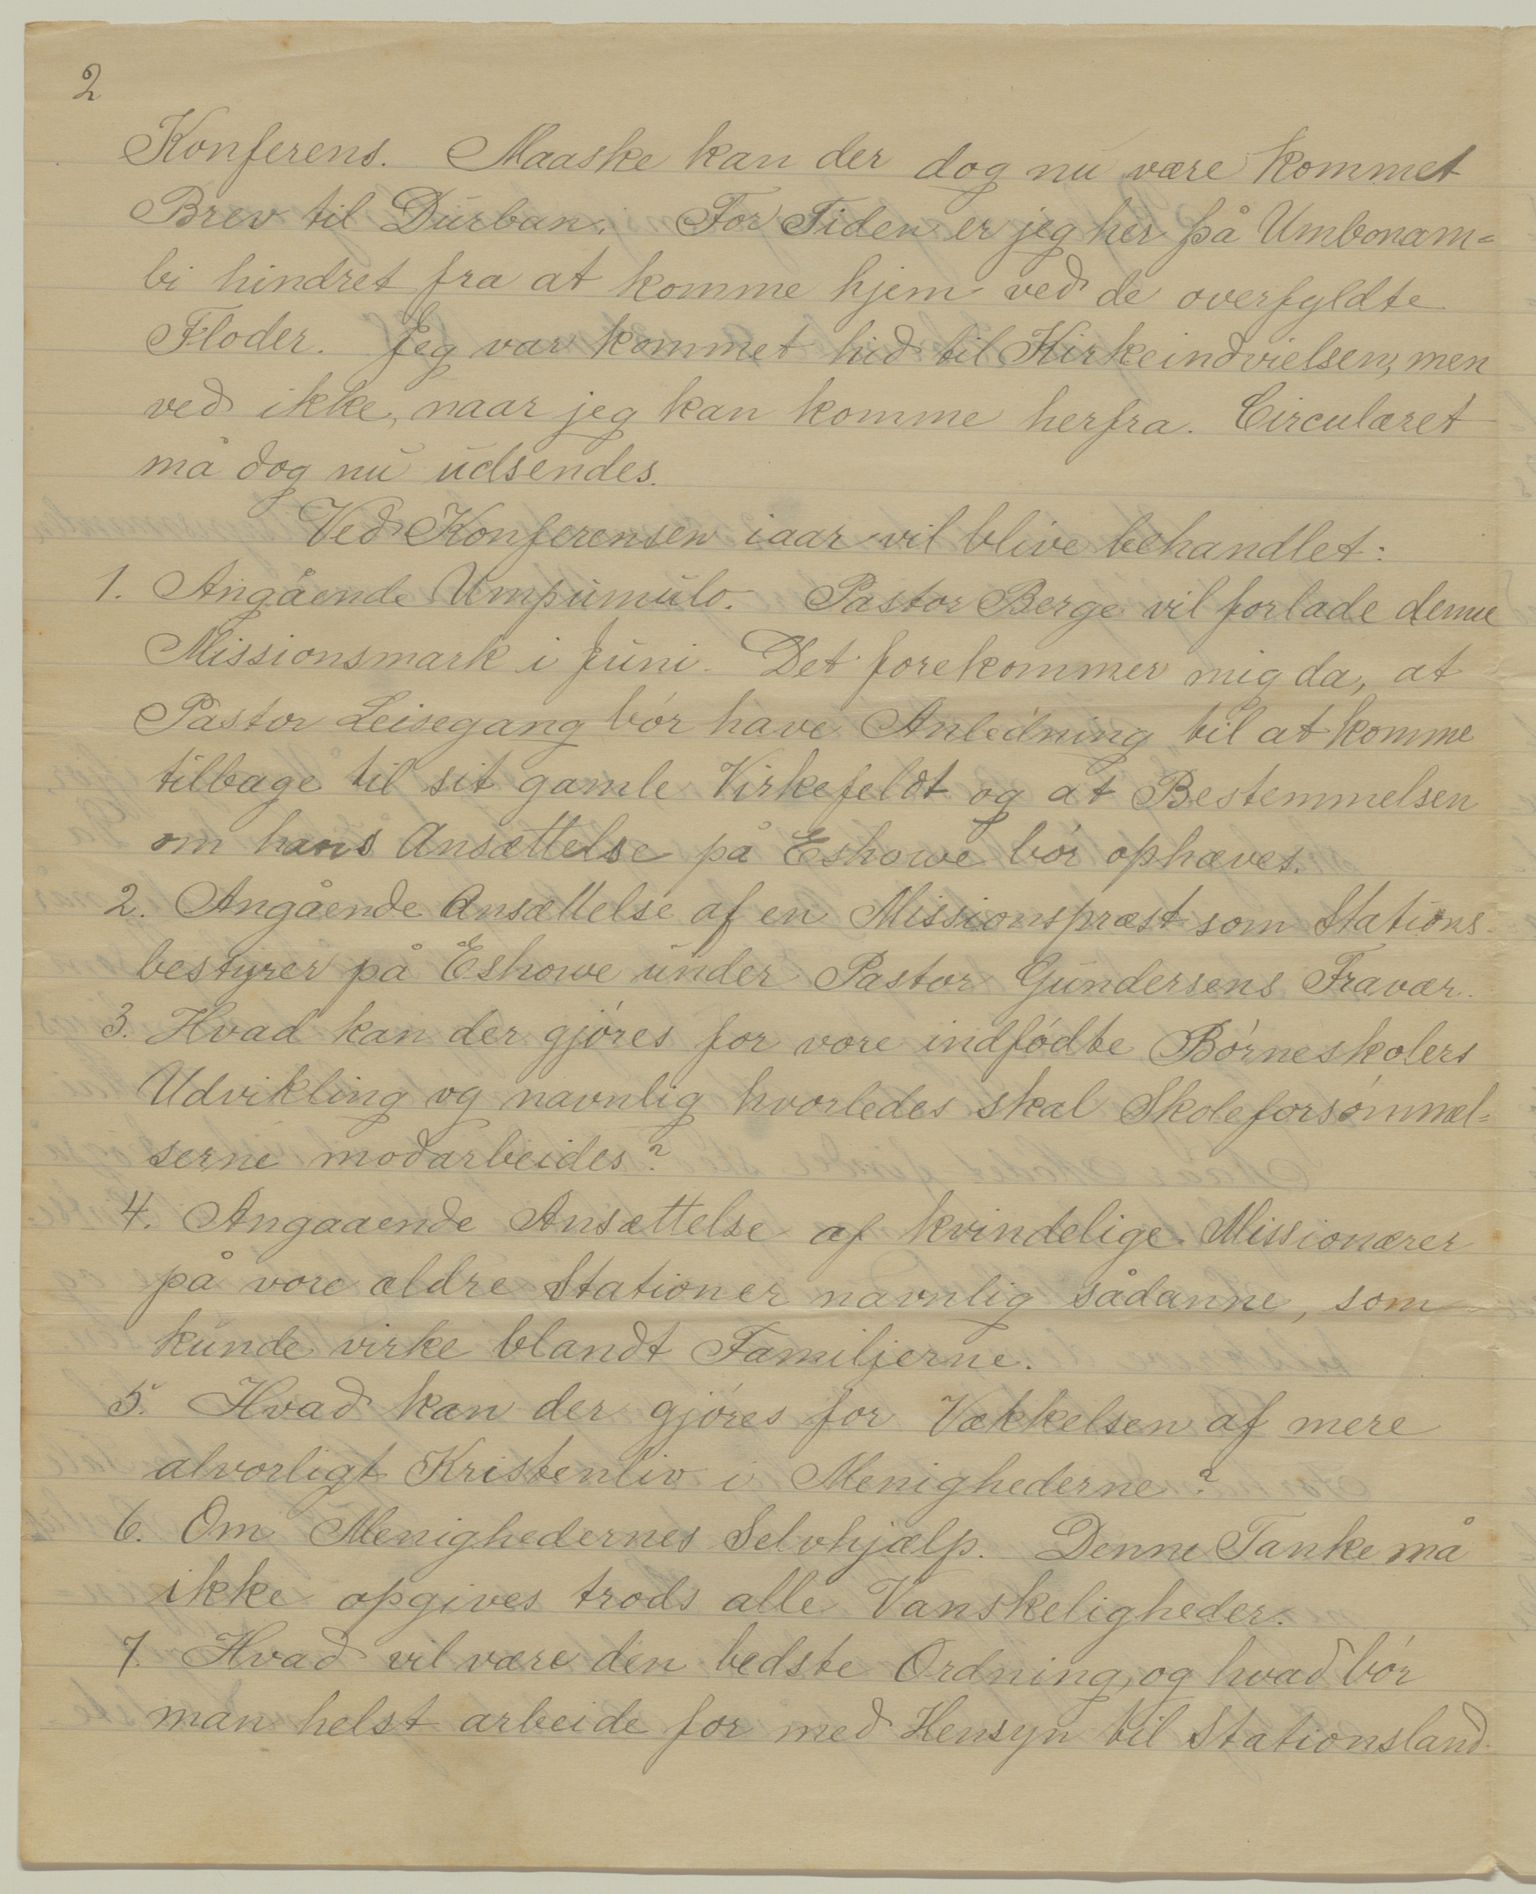 2
Konferens. Maaske kan der dog nu være kommet
Brev til Durban. For Tiden er jeg her på Umbonam=
bi hindret fra at komme hjem ved de overfyldte
Floder. Jeg var kommet hid til Kirkeindvielsen, men
ved ikke, naar jeg kan komme herfra. Circulæret
må dog nu udsendes.
Ved Konferensen iaar vil blive behandlet:
1. Angående Umpumulo. Pastor Berge vil forlade denne
Missionsmark i Juni. Det forekommer mig da, at
Pastor Leisegang bór have Anledning til at komme
tilbage til sit gamle Virkefeldt og at Bestemmelsen
om hans Ansættelse på Eshowe bór ophæves.
2. Angående Ansættelse af en Missionspræst som Stations-
bestyrer på Eshowe under Pastor Gundersens Fravær.
3. Hvad kan der gjóres for vore indfódte Bórneskolers
Udvikling og navnlig hvorledes skal Skoleforsómmel=
serne modarbeides?
4. Angaaende Ansættelse af kvindelige Missionærer
på vore ældre Stationer navnlig sådanne, som
kunde virke blandt Familjerne.
5. Hvad kan der gjóres for Vækkelsen af mere
alvorligt Kristenliv i Menighederne?
6. Om Menighedernes Selvhjælp. Denne Tanke må
ikke opgives trods alle Vanskeligheder.
7. Hvad vil være den bedste Ordning, og hvad bór
man helst arbeide for med Hensyn til Stationsland-